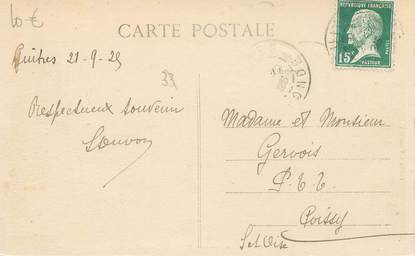 10 €
CARTE POSTALE
RÉPUBLIQUE FRANÇAISE
15c
PASTEUR
Guîtres 21-9-25
33
Respectueux souvenir
Madame et Monsieur
Gervois
P.T.T
Poissy
S et Oise